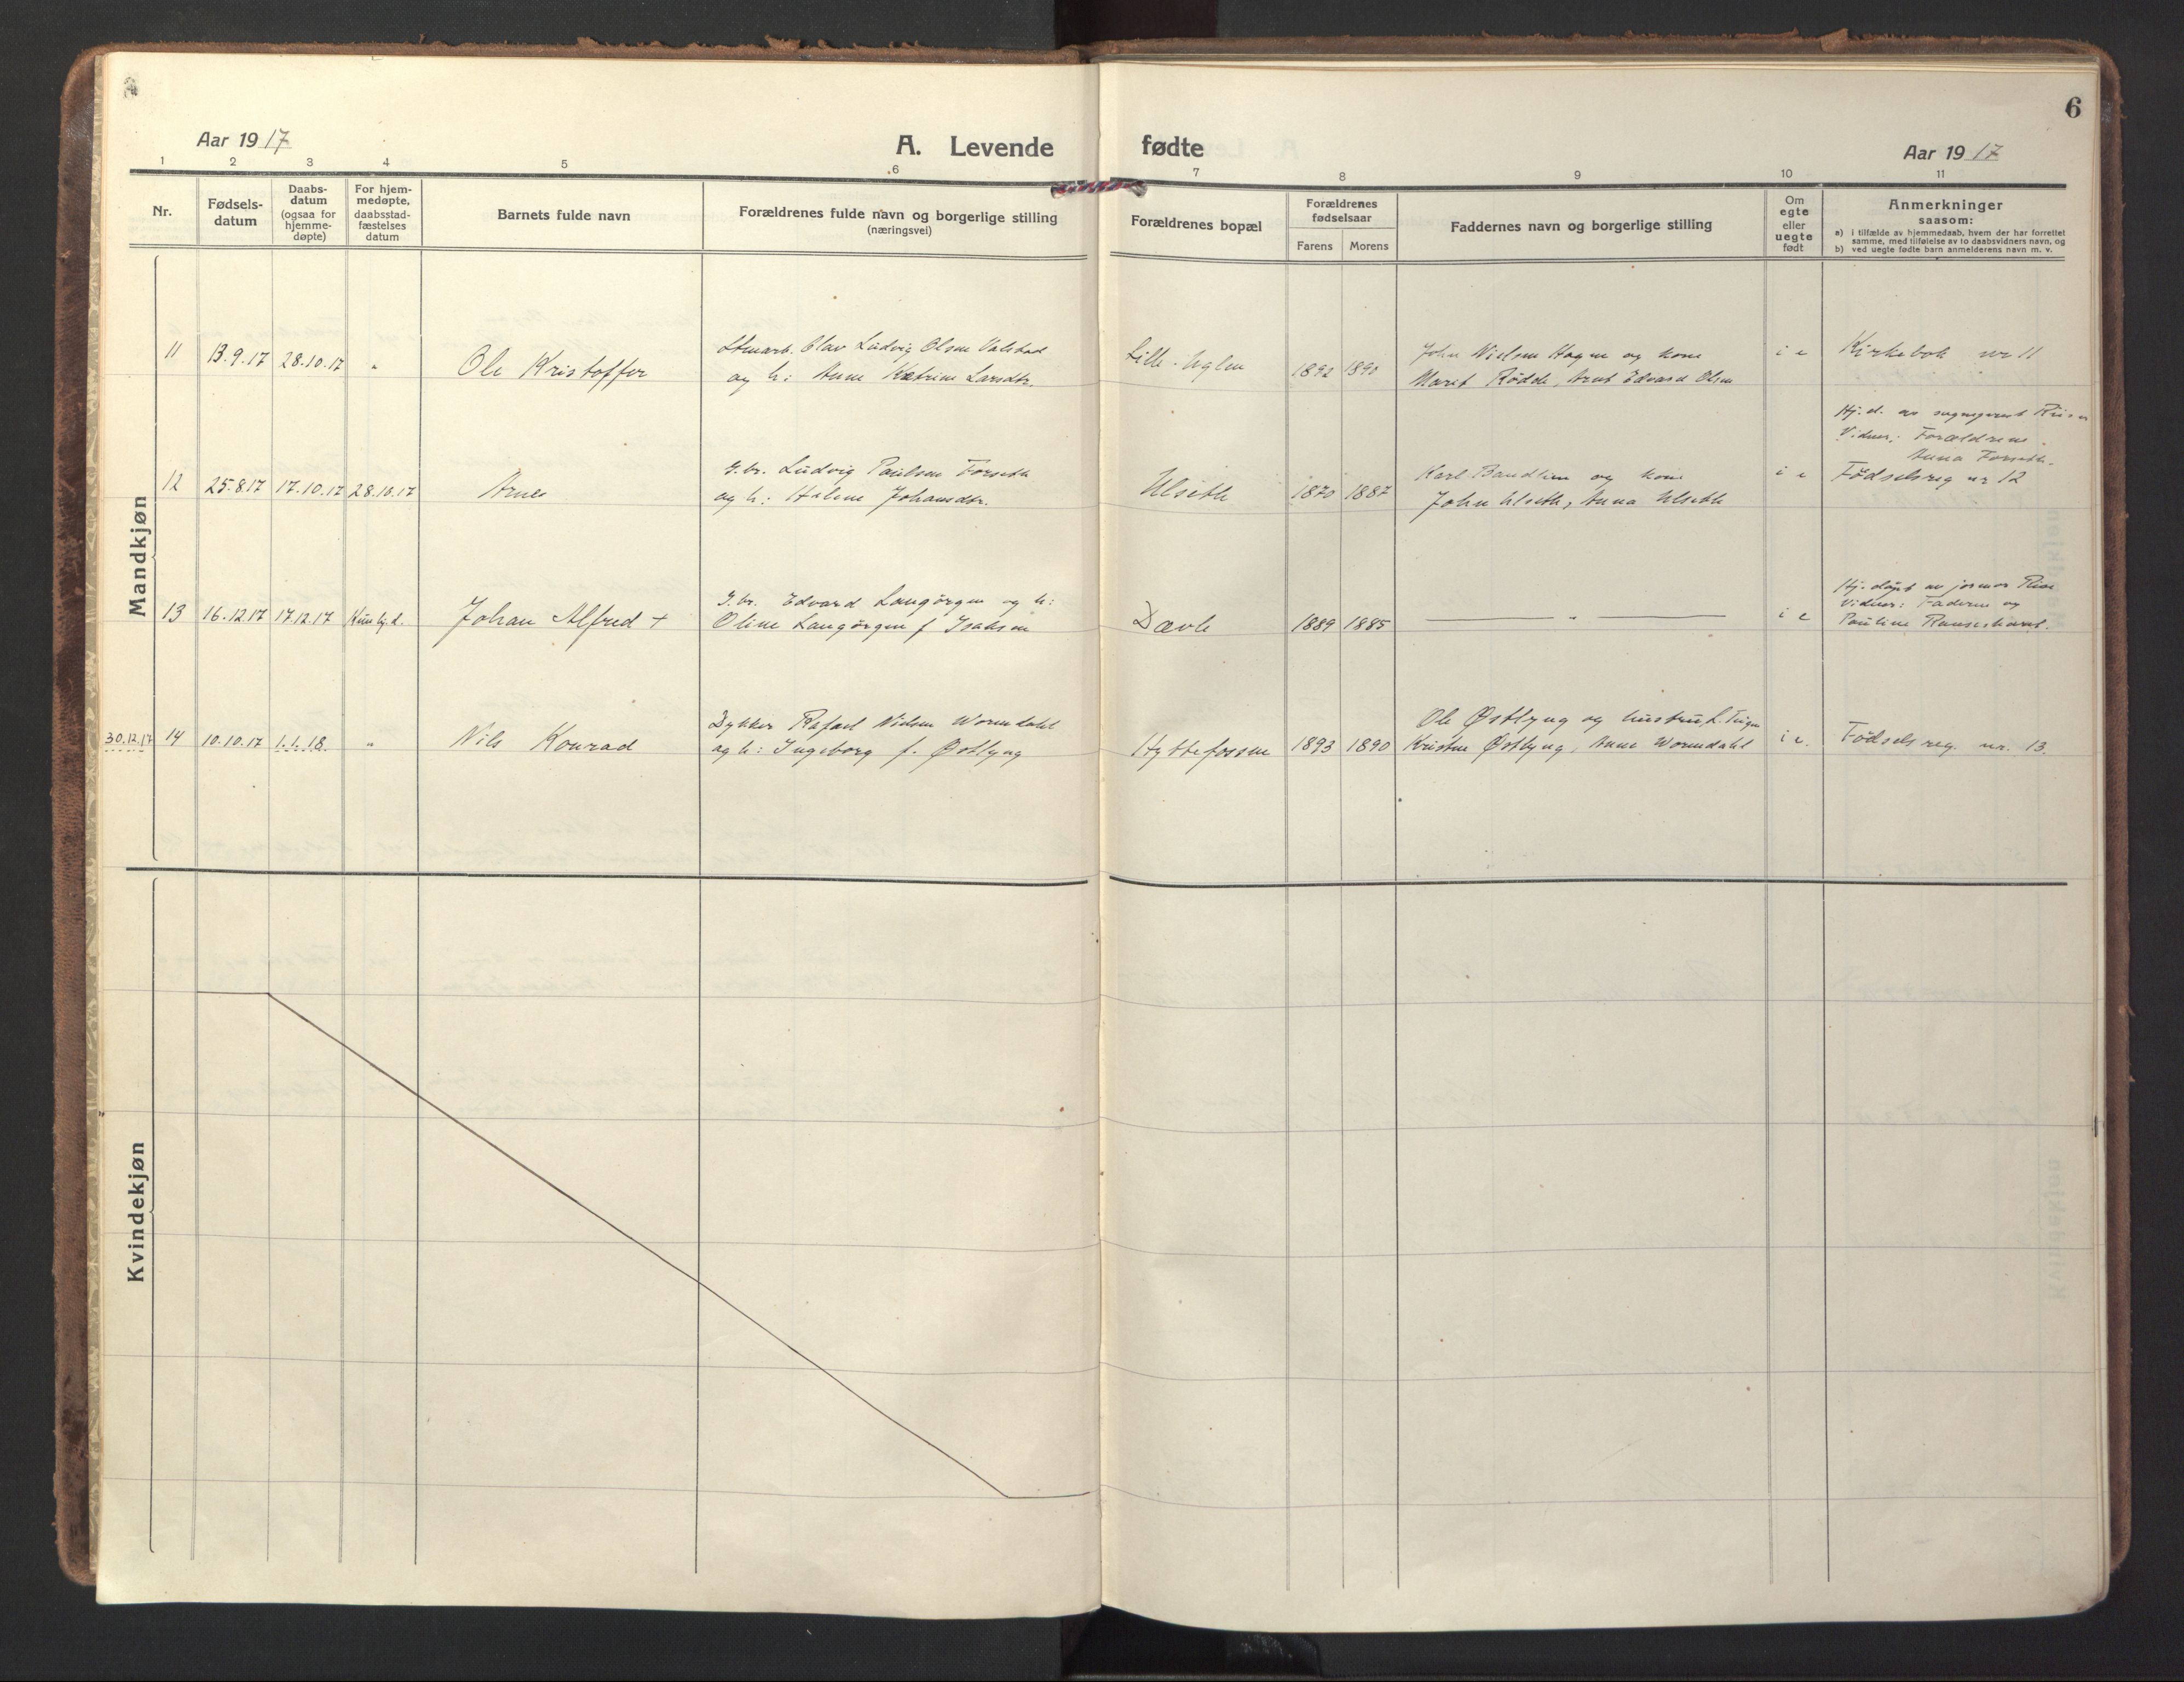 6
Aar 1917
A. Levende fødte
Aar 1917
1 2 3 4 5 6 7 8 9 10 11
Nr.
Fødsels-
datum
Daabs-
datum
(ogsaa for
hjemme-
døpte)
For hjem-
medøpte,
daabsstad-
fæstelses
datum
Barnets fulde navn
Forældrenes fulde navn og borgerlige stilling
(næringsvei)
Forældrenes bopæl
Forældrenes
fødselsaar
Farens Morens
Faddernes navn og borgerlige stilling
Om
egte
eller
uegte
født
Anmerkninger
saasom:
a) i tilfælde av hjemmedaab, hvem der har forrettet
samme, med tilføielse av to daabsvidners navn, og
b) ved uegte fødte barn anmelderens navn m. v.
Mandkjøn
11 13.9.17 28.10.17 " Ole Kristoffer
Olav Ludvig Olsen Valstad
og h: Anne Katrine Larsdtr.
Lille-Uglen 1892 1890
John Nielsen Hagen og kone
Marit Rødde, Arnt Edvard Olsen
i e
Kirkebok nr 11
12 25.8.17 17.10.17 28.10.17 Arne
G.br. Ludvig Paulsen Forseth
og h: Halene Johansdtr.
Ulseth 1870 1887
Karl Bandlien og kone
John Ulseth, Anna Ulseth
i e
Hj.d. av
Vidner: Forældrene.
Anna Forseth.
Fødselsreg nr 12
13 16.12.17 17.12.17 Kun hj.d. Johan Alfred +
G.br. Edvard Langørgen og h:
Oline Langørgen f Isaksen
Dævle 1889 1885
"
i e
Hj.døpt av jormor Riise
Vidner: Faderen og
Pauline
30.12.17 14 10.10.17 1.1.18. " Nils Konrad
Dykker Rafael Nielsen Wormdahl
og h: Ingeborg f. Østlyng
Hyttefossen 1893 1890
Ole Østlyng og hustru,
Kristine Østlyng, Anne Wormdahl
i e.
Fødselsreg. nr. 13.
Kvindekjøn